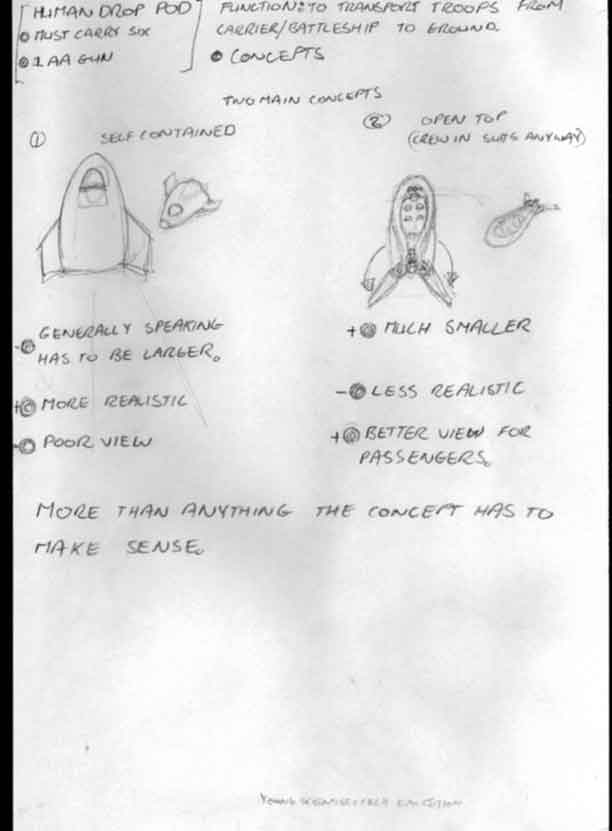 HUMAN DROP POD
● MUST CARRY SIX
● 1 AA GUN
FUNCTION: TO TRANSPORT TROOPS FROM
CARRIER/BATTLESHIP TO GROUND.
● CONCEPTS
TWO MAIN CONCEPTS
① SELF CONTAINED
- GENERALLY SPEAKING
HAS TO BE LARGER.
+ MORE REALISTIC
- POOR VIEW
② OPEN TOP
(CREW IN SUITS ANYWAY)
+ MUCH SMALLER
- LESS REALISTIC
+ BETTER VIEW FOR
PASSENGERS.
MORE THAN ANYTHING THE CONCEPT HAS TO
MAKE SENSE.
YOUNG